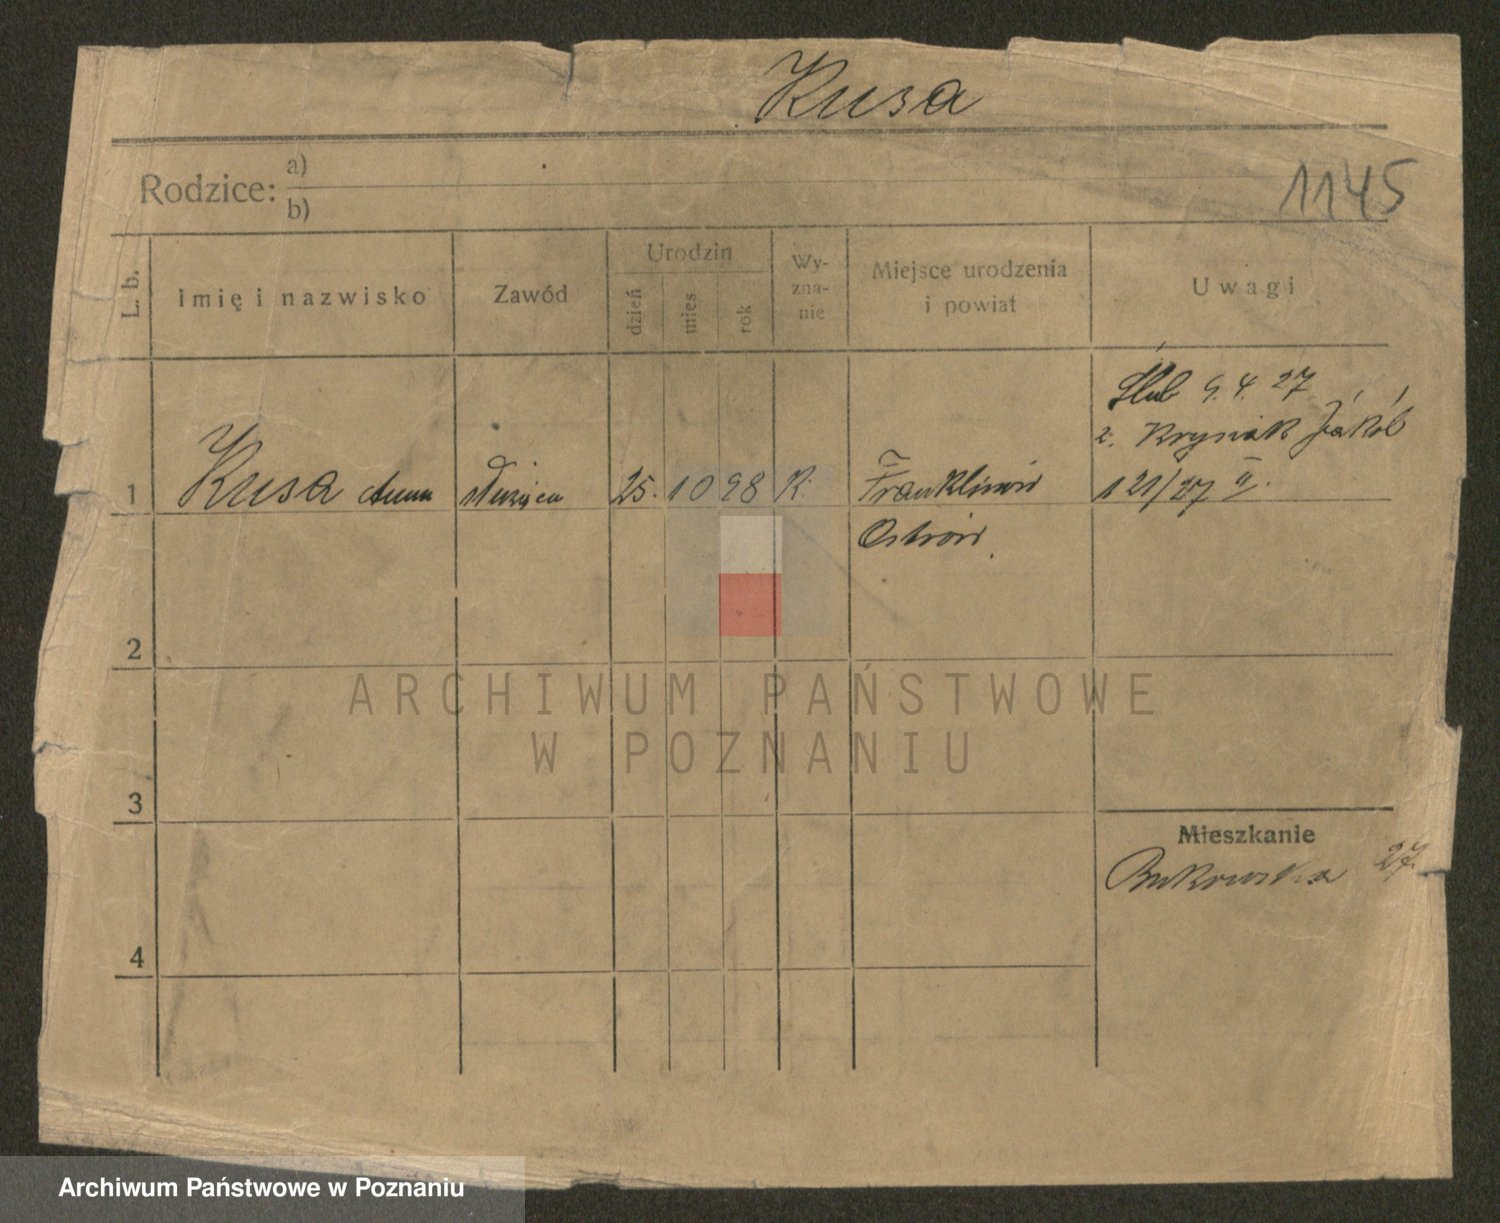 Kusa
1145
Rodzice: a)
b)
L. b.
Imię i nazwisko
Zawód
Urodzin
dzień
mies
rok
Wy-
zna-
nie
Miejsce urodzenia
i powiat
Uwagi
Ślub 9. 4. 27
z. Kryniak Jakób
121/27 II.
1 Kusa Anna służąca 25. 10 98 K. Franklinów
Ostrów
2
3
4
Mieszkanie
Bukowska 27
ARCHIWUM PAŃSTWOWE
W POZNANIU
Archiwum Państwowe w Poznaniu